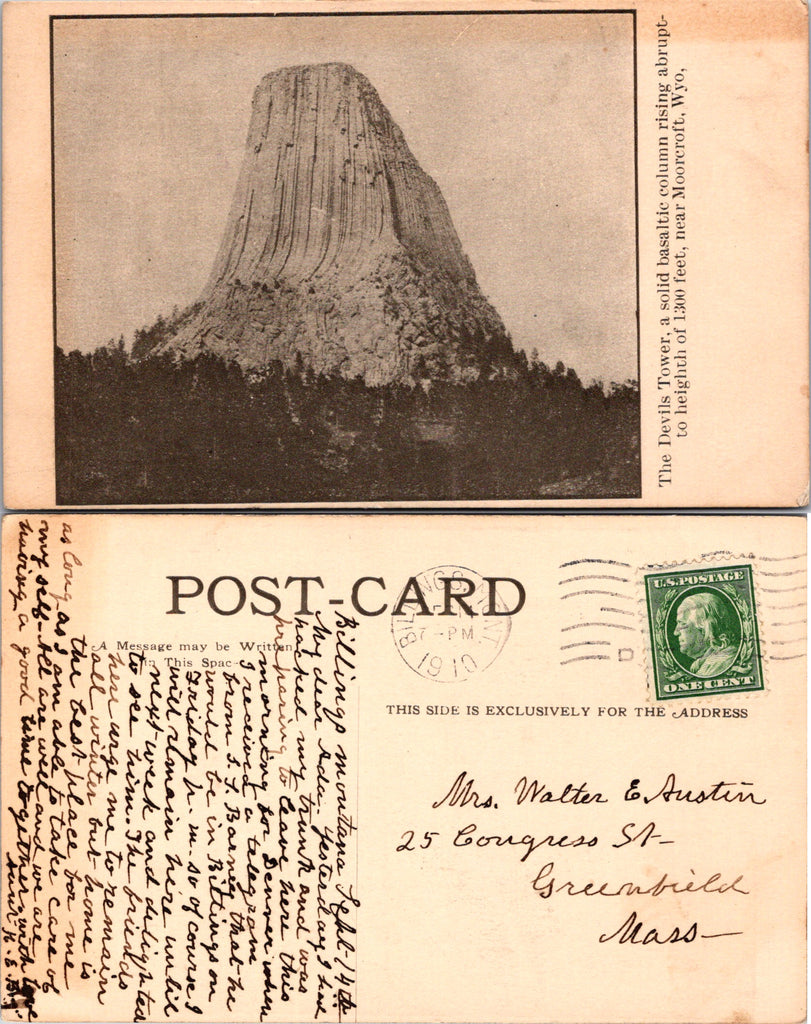 The Devils Tower, a solid basaltic column rising abrupt-
to heighth of 1300 feet, near Moorcroft, Wyo,
POST-CARD
A Message may be Written
in This Spac
BILLINGS MONT
7-PM
1910
U.S. POSTAGE
ONE CENT
THIS SIDE IS EXCLUSIVELY FOR THE ADDRESS
Mrs. Walter E Austin
25 Congress St-
Greenfield
Mass-
Billings Montana Sept-14th
My dear Ada. Yesterday I had
packed my trunk and was
preparing to leave here this
morning for Denver when
I received a telegram
from S. L. Barney that he
would be in Billings on
Friday P. m. so of course I
will remain here until
next week and delighted
to see him. The friends
here urge me to remain
all winter but home is
the best place for me
as long as I am able to take care of
my self. All are well and we are
having a good time together with love
Aunt H. E.